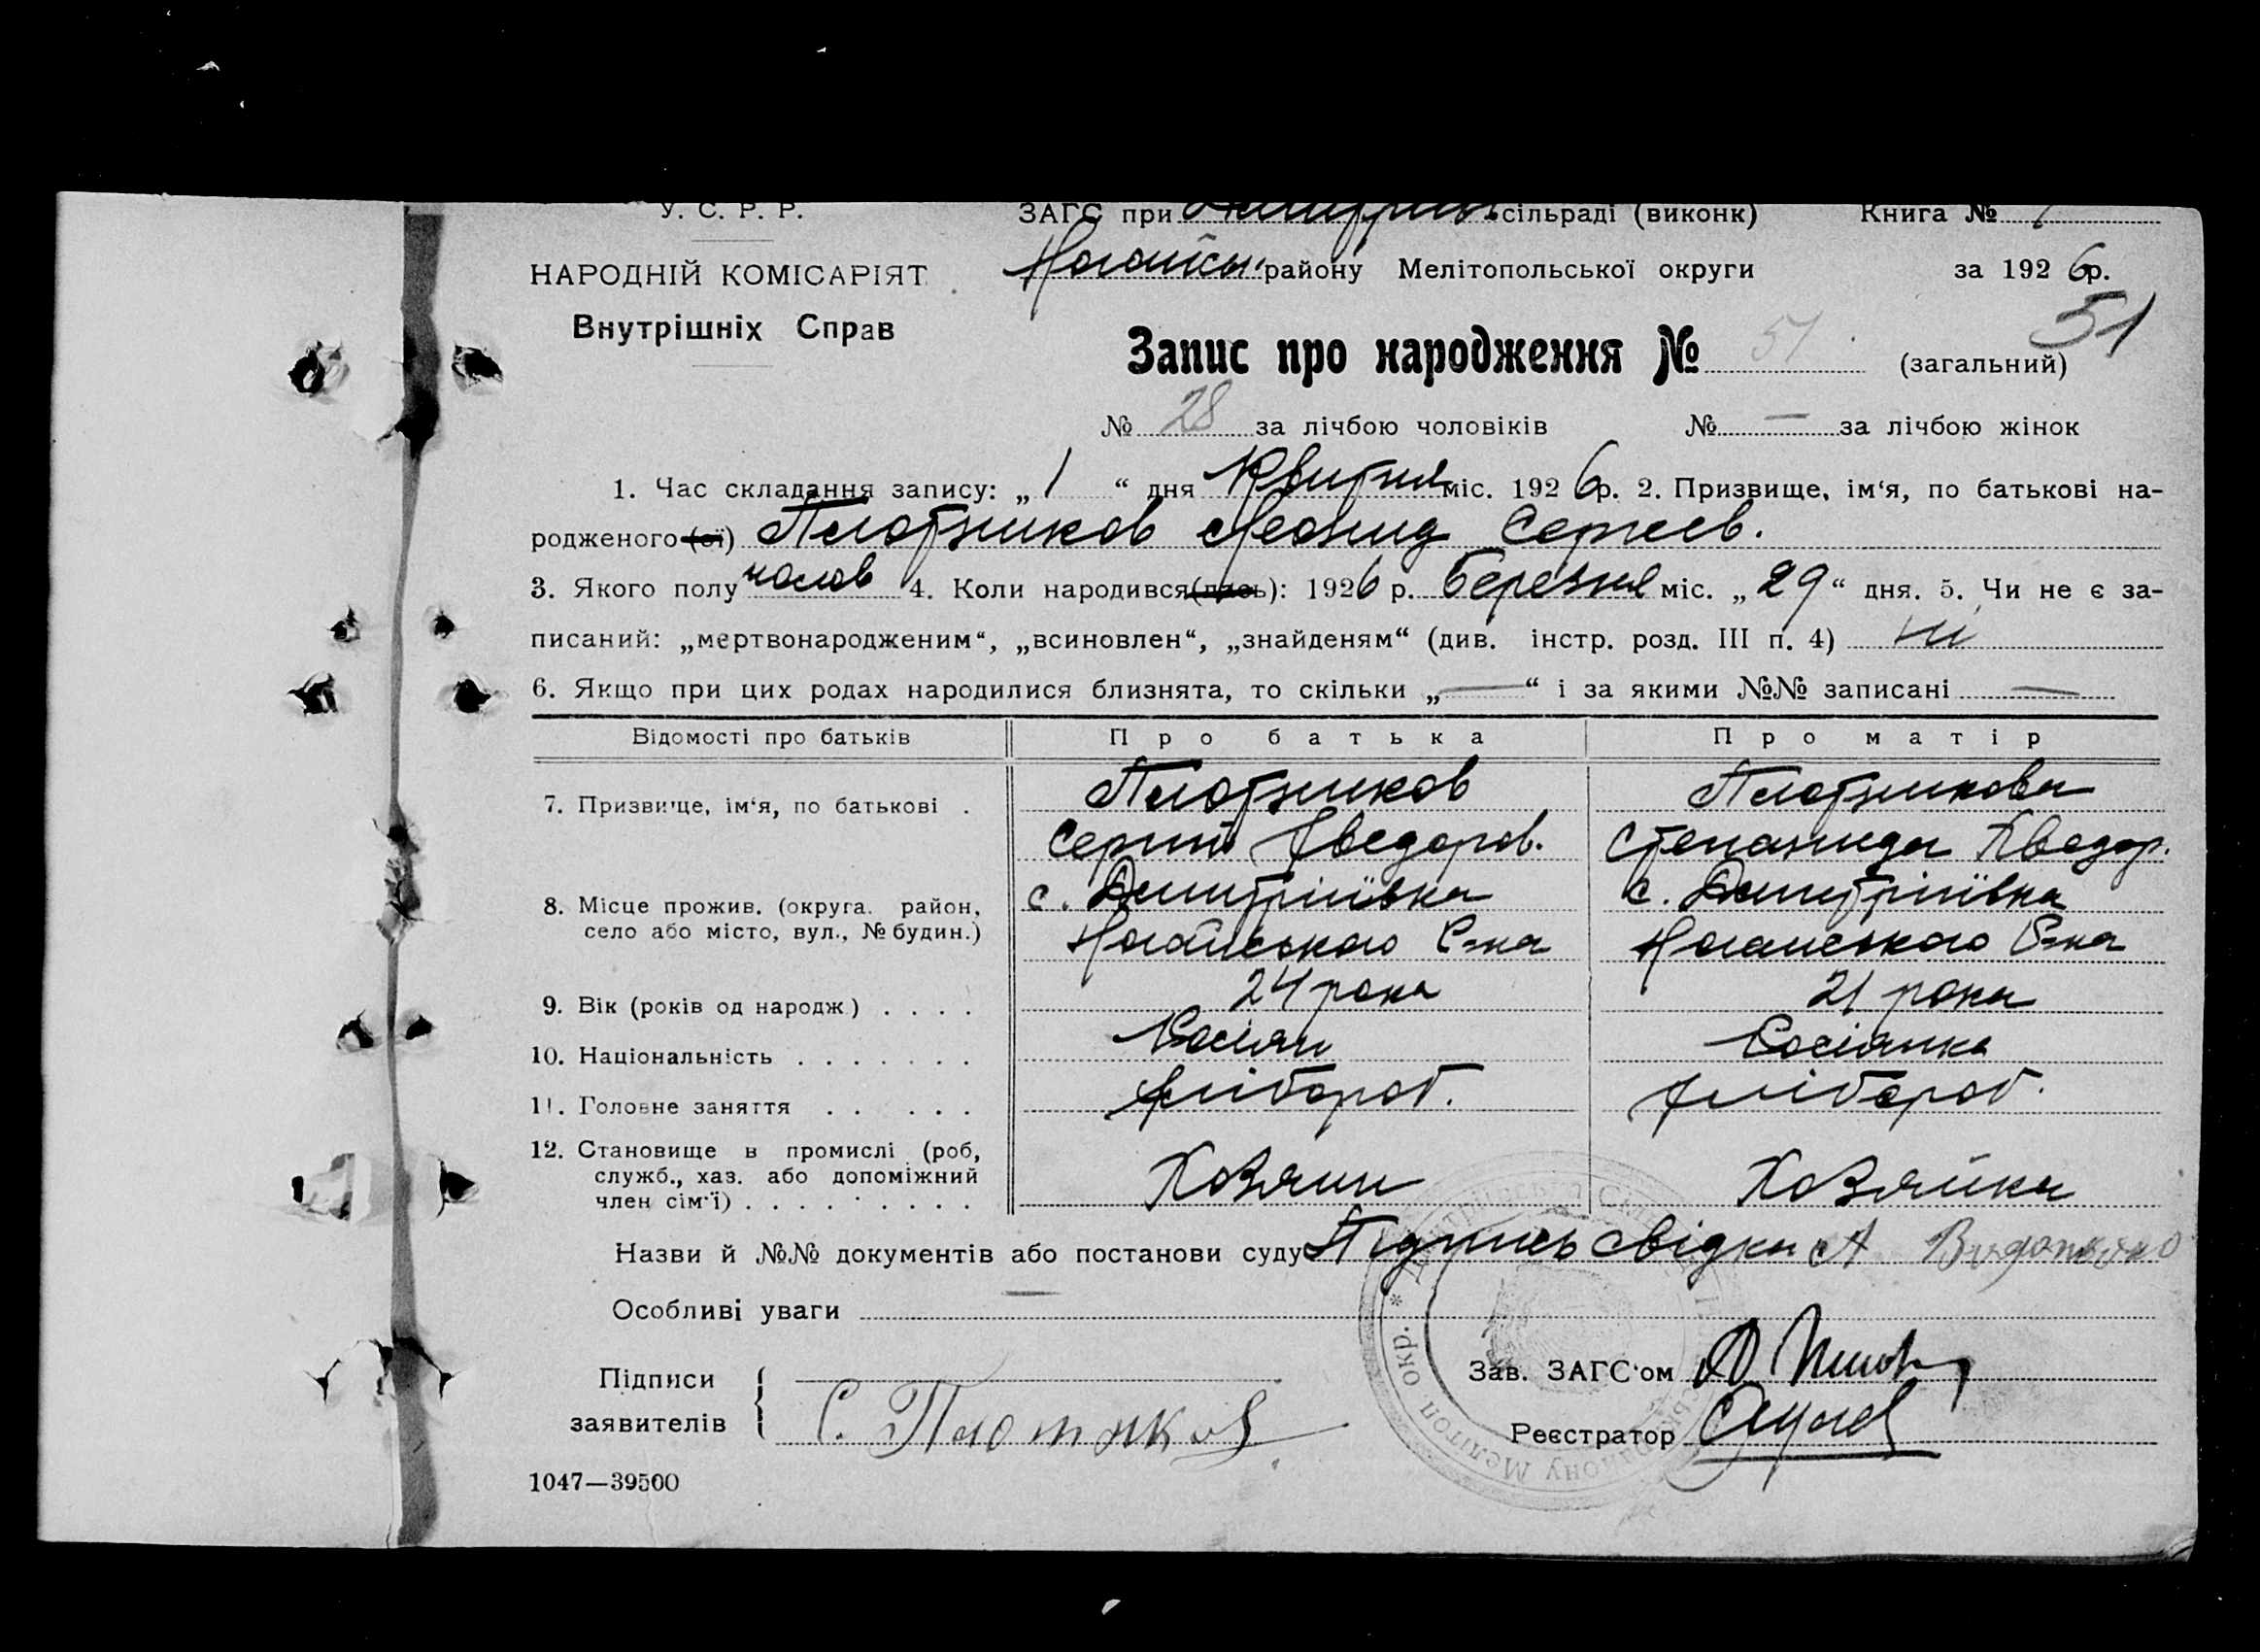 У. С. Р. Р. ЗАГС при сільраді (виконк) Книга №
НАРОДНІЙ КОМІСАРІЯТ Ногайськ. району Мелітопольської округи за 1926 р.
Внутрішніх Справ
51
Запис про народження № 51 (загальний)
№ 28 за лічбою чоловіків № — за лічбою жінок
1. Час складання запису: „1“ дня Квитня міс. 1926 р. 2. Призвище, ім‘я, по батькові на-
родженого (ої) Плотников Леонид Сергеев.
3. Якого полу чолов 4. Коли народився (лась): 1926 р. Березня міс. „29“ дня. 5. Чи не є за-
писаний: „мертвонародженим“, „всиновлен“, „знайденям“ (див. інстр. розд. III п. 4) ні
6. Якщо при цих родах народилися близнята, то скільки „—“ і за якими №№ записані —
Відомості про батьків Про батька Про матір
7. Призвище, ім‘я, по батькові . Плотников Плотникова
Сергий Хведоров. Степанида Хведор.
8. Місце прожив. (округа. район, с. Дмитріївка с. Дмитріївка
село або місто, вул., № будин.) Ногайського Р-на Ногайського Р-на
9. Вік (років од народж) . . . . 24 рока 21 рока
10. Національність . . . . . . . Росіян Росіянка
11. Головне заняття . . . . . хлібороб. хлібороб.
12. Становище в промислі (роб,
служб., хаз. або допоміжний Хозяин Хозяйка
член сім‘ї) . . . . . . . . .
Назви й №№ документів або постанови суду Підпись свідка А
Особливі уваги —
Підписи Зав. ЗАГС‘ом
заявителів С. Плотнков Реєстратор
1047—39500